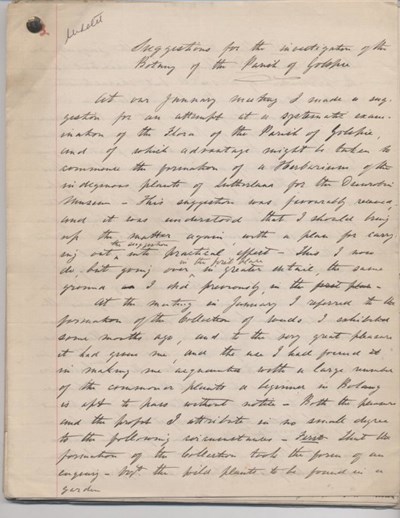 Suggestions for the investigation of the
Botany of the Parish of Golspie
At our January meeting I made a sug-
gestion for an attempt at a systematic exam-
ination of the Flora of the Parish of Golspie,
and of which advantage might be taken to
commence the formation of a Herbarium of the
indigenous plants of Sutherland for the Dunrobin
Museum - This suggestion was favourably received
and it was understood that I should bring
up the matter again, with a plan for carry
ing out the suggestion into practical effect - This I now
do, but going over in the first place in greater detail, the same
ground as I did previously in the first place -
At the meeting in January I referred to the
formation of the Collection of weeds I exhibited
some months ago, and to the very great pleasure
it had given me, and the use I had found it
in making me acquainted with a large number
of the commoner plants a beginner in Botany
is apt to pass without notice - Both the pleasure
and the profit I attribute in no small degree
to the following circumstances - First that the
formation of the Collection took the form of an
enquiry - viz. the wild plants to be found in a
garden